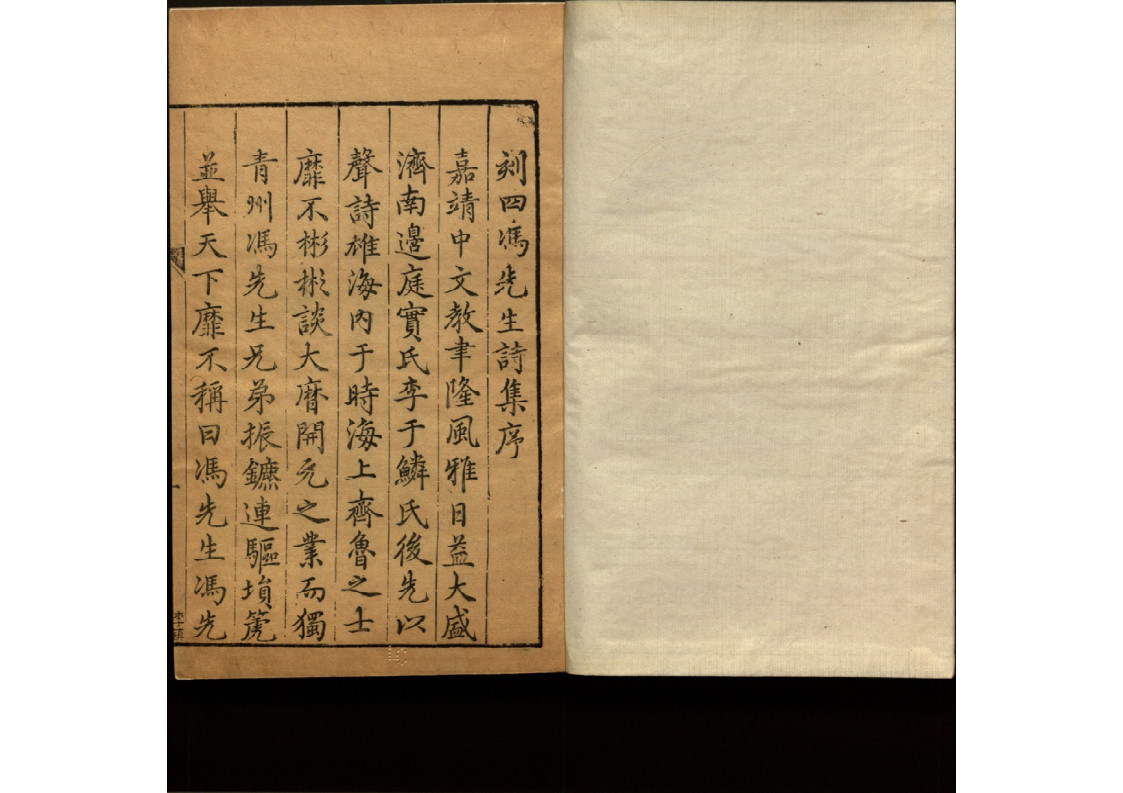 刻四馮先生詩集序
嘉靖中文教聿隆風雅日益大盛
濟南邊庭實氏李于鱗氏後先以
聲詩雄海內于時海上齊魯之士
靡不彬彬談大曆開元之業而獨
青州馮先生兄弟振鑣連驅塤箎
並舉天下靡不稱曰馮先生馮先